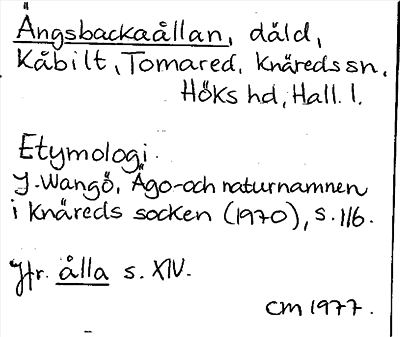 Ängsbackaållan, dåld,
Kåbilt, Tomared, Knäreds sn,
Höks hd, Hall. l.
Etymologi.
J. Wangö, Ägo- och naturnamnen
i Knäreds socken (1970), s. 116.
Jfr. ålla s. XIV.
CM 1977.